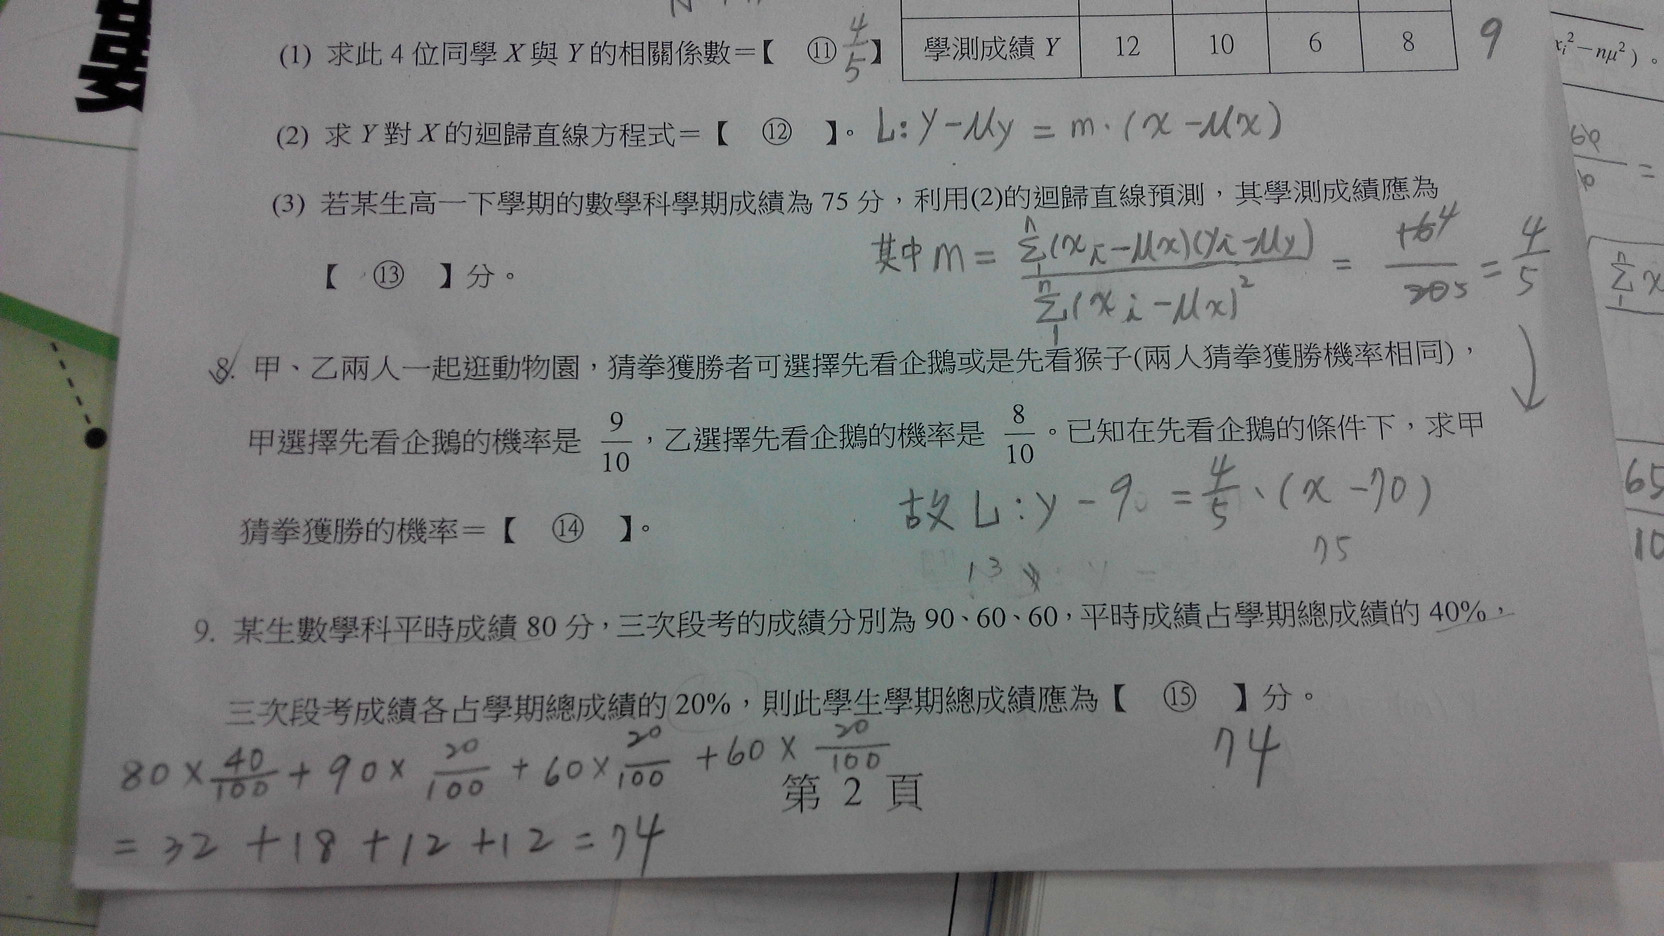 (1) 求此 4 位同學 X 與 Y 的相關係數＝【 ⑪ 4/5 】
學測成績 Y 12 10 6 8 9
(2) 求 Y 對 X 的迴歸直線方程式＝【 ⑫ 】。 L: y－μy = m·(x－μx)
(3) 若某生高一下學期的數學科學期成績為 75 分，利用(2)的迴歸直線預測，其學測成績應為
【 ⑬ 】分。
其中 m = Σ(xi－μx)(yi－μy) / Σ(xi－μx)² = = 4/5
8. 甲、乙兩人一起逛動物園，猜拳獲勝者可選擇先看企鵝或是先看猴子(兩人猜拳獲勝機率相同)，
甲選擇先看企鵝的機率是 9/10，乙選擇先看企鵝的機率是 8/10。已知在先看企鵝的條件下，求甲
故 L: y－9 = 4/5·(x－70)
猜拳獲勝的機率＝【 ⑭ 】。
13 75
9. 某生數學科平時成績 80 分，三次段考的成績分別為 90、60、60，平時成績占學期總成績的 40%，
三次段考成績各占學期總成績的 20%，則此學生學期總成績應為【 ⑮ 】分。
74
80×40/100+90×20/100+60×20/100+60×20/100
第 2 頁
= 32 +18 +12 +12 = 74
xi²－nμ²)。
65
10